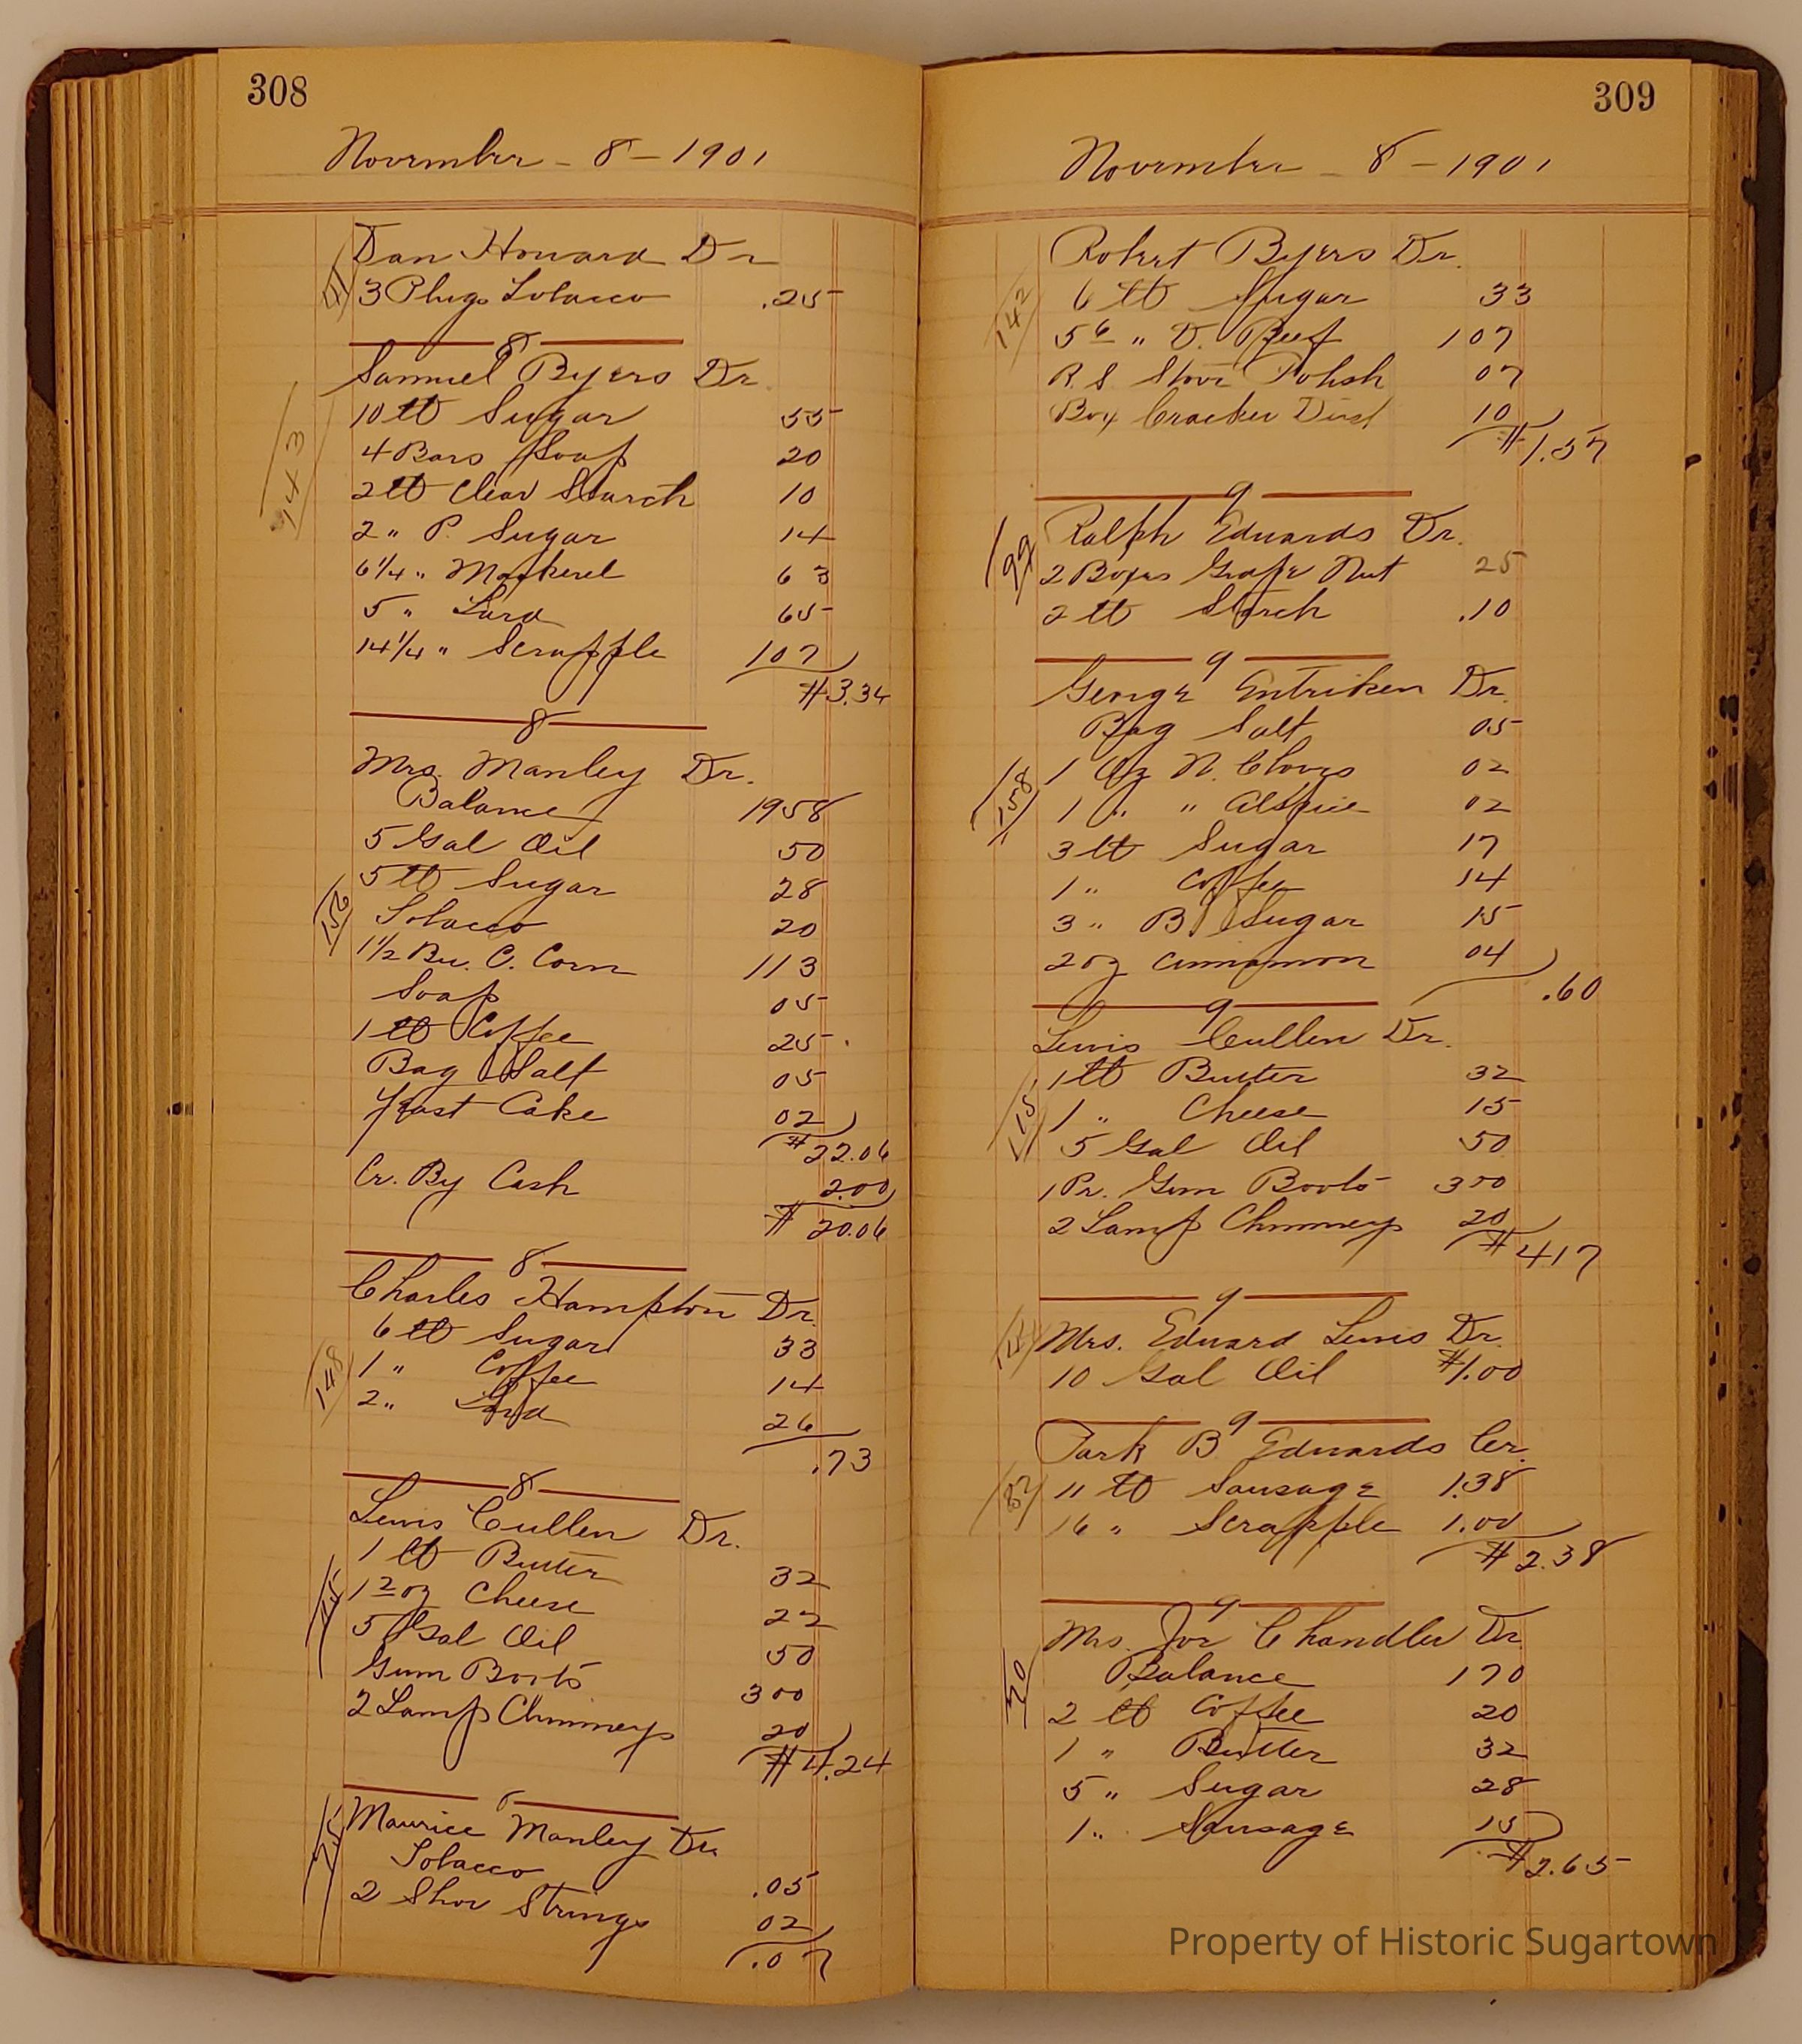 308
November - 8 - 1901
Dan Howard Dr
3 Plugs Tobacco .25
8
Samuel Byers Dr.
143
10 lb Sugar 55
4 Bars Soap 20
2 lb Clear Starch 10
2 " P. Sugar 14
6 1/4 " Mackerel 63
5 " Lard 65
14 1/4 " Scrapple 107
$3.34
8
Mrs. Manley Dr.
Balance 1958
5 Gal Oil 50
5 lb Sugar 28
156
Tobacco 20
1 1/2 Bu. C. Corn 113
Soap 05
1 lb Coffee 25
Bag Salt 05
Yeast Cake 02
$22.06
Cr. By Cash 2.00
$20.06
8
Charles Hampton Dr.
6 lb Sugar 33
148
1 " Coffee 14
2 " Lard 26
.73
8
Lewis Cullen Dr.
1 lb Butter 32
1 2 oz Cheese 22
5 Gal Oil 50
Gum Boots 300
2 Lamp Chimneys 20
$4.24
8
Maurice Manley Dr
Tobacco .05
2 Shoe Strings 02
.07
309
November - 8 - 1901
Robert Byers Dr.
142
6 lb Sugar 33
5 6 " D. Beef 107
R. S. Stove Polish 07
Box Cracker Dust 10
$1.57
9
Ralph Edwards Dr.
2 Boxes Grape Nut 25
2 lb Starch .10
9
George Entriken Dr.
Bag Salt 05
158
1 Oz N. Cloves 02
1 " " Alspice 02
3 lb Sugar 17
1 " Coffee 14
3 " B Sugar 15
2 oz Cinnamon 04
.60
9
Lewis Cullen Dr.
115
1 lb Butter 32
1 " Cheese 15
5 Gal Oil 50
1 Pr. Gum Boots 300
2 Lamp Chimneys 20
$417
9
Mrs. Edward Lewis Dr.
10 Gal Oil $1.00
9
Park B Edwards Cr.
82
11 lb Sausage 1.38
16 " Scrapple 1.00
$2.38
9
Mrs. Joe Chandler Dr
Balance 170
2 lb Coffee 20
1 " Butter 32
5 " Sugar 28
1 " Sausage 15
$2.65
Property of Historic Sugartown